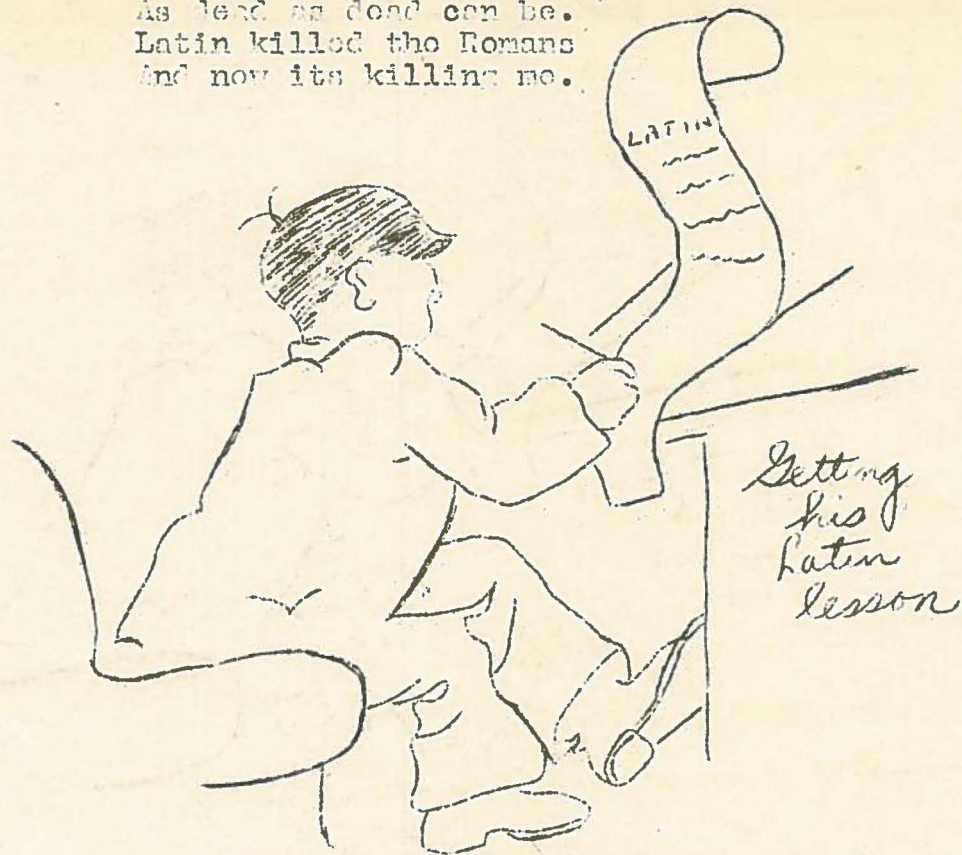 As dead as dead can be.
Latin killed the Romans
And now its killing me.
LATIN
Getting
his
Latin
lesson